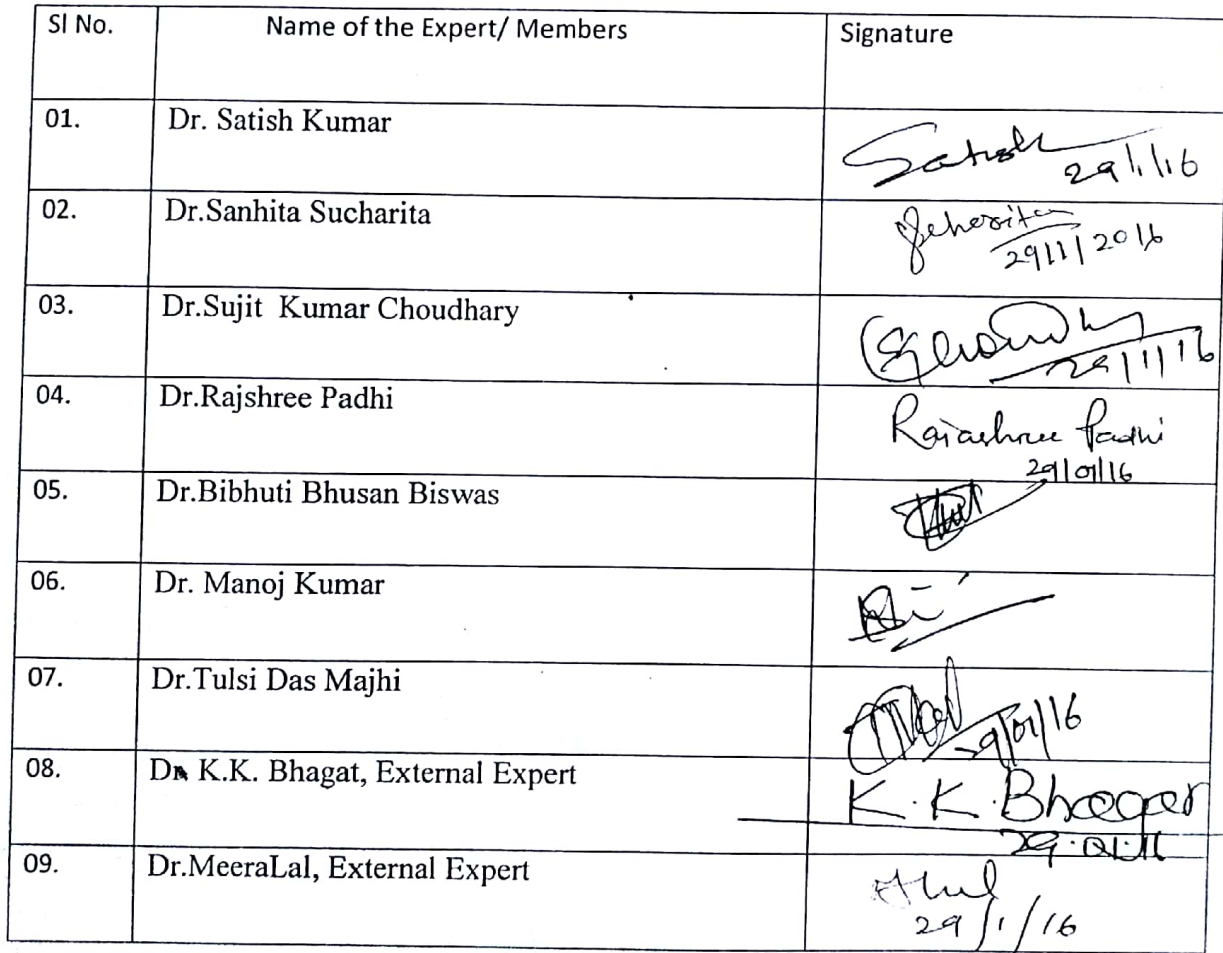 Sl No. Name of the Expert/ Members Signature
01. Dr. Satish Kumar Satish
29/1/16
02. Dr.Sanhita Sucharita
29/1/2016
03. Dr.Sujit Kumar Choudhary
29/1/16
04. Dr.Rajshree Padhi Rajashree Padhi
29/01/16
05. Dr.Bibhuti Bhusan Biswas
06. Dr. Manoj Kumar
07. Dr.Tulsi Das Majhi
29/01/16
08. K.K. Bhagat, External Expert K.K.Bhagat
29.01.16
09. Dr.MeeraLal, External Expert
29/1/16